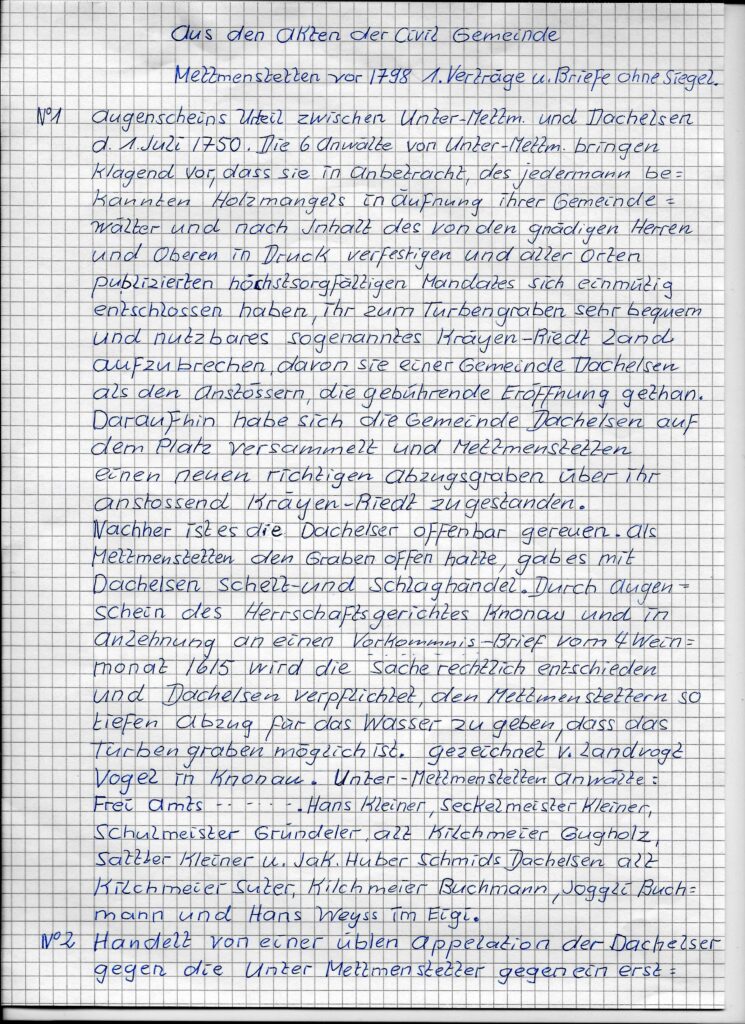 Aus den Akten der Civil Gemeinde
Mettmenstetten vor 1798 1. Verträge u. Briefe ohne Siegel.
No 1 Augenscheins Urteil zwischen Unter-Mettm. und Dachelsen
d. 1. Juli 1750. Die 6 Anwälte von Unter-Mettm. bringen
klagend vor, dass sie in Anbetracht, des jedermann be=
kannten Holzmangels in Äufnung ihrer Gemeinde=
wälter und nach Inhalt des von den gnädigen Herren
und Oberen in Druck verfestigen und aller Orten
publizierten höchstsorgfältigen Mandates sich einmütig
entschlossen haben, ihr zum Turbengraben sehr bequem
und nutzbares sogenanntes Kräyen-Riedt Land
aufzubrechen, davon sie einer Gemeinde Dachelsen
als den Anstössern, die gebührende Eröffnung gethan.
Daraufhin habe sich die Gemeinde Dachelsen auf
dem Platz versammelt und Mettmenstetten
einen neuen richtigen Abzugsgraben über ihr
anstossend Kräyen-Riedt zugestanden.
Nachher ist es die Dachelser offenbar gereuen. Als
Mettmenstetten den Graben offen hatte, gab es mit
Dachelsen Schelt- und Schlaghändel. Durch Augen-
schein des Herrschaftsgerichtes Knonau und in
Anlehnung an einen Vorkommnis-Brief vom 4 Wein=
monat 1615 wird die Sache rechtlich entschieden
und Dachelsen verpflichtet, den Mettmenstettern so
tiefen Abzug für das Wasser zu geben, dass das
Turbengraben möglich ist. gezeichnet v. Landvogt
Vogel in Knonau. Unter-Mettmenstetten Anwälte:
Frei Amts - - - - - - . Hans Kleiner, Seckelmeister Kleiner,
Schulmeister Gründeler, alt Kilchmeier Gugholz,
Sattler Kleiner u. Jak. Huber Schmids Dachelsen alt
Kilchmeier Suter, Kilchmeier Buchmann, Joggli Buch=
mann und Hans Weyss im Eigi.
No 2 Handelt von einer üblen Appelation der Dachelser
gegen die Unter Mettmenstetter gegen ein erst=